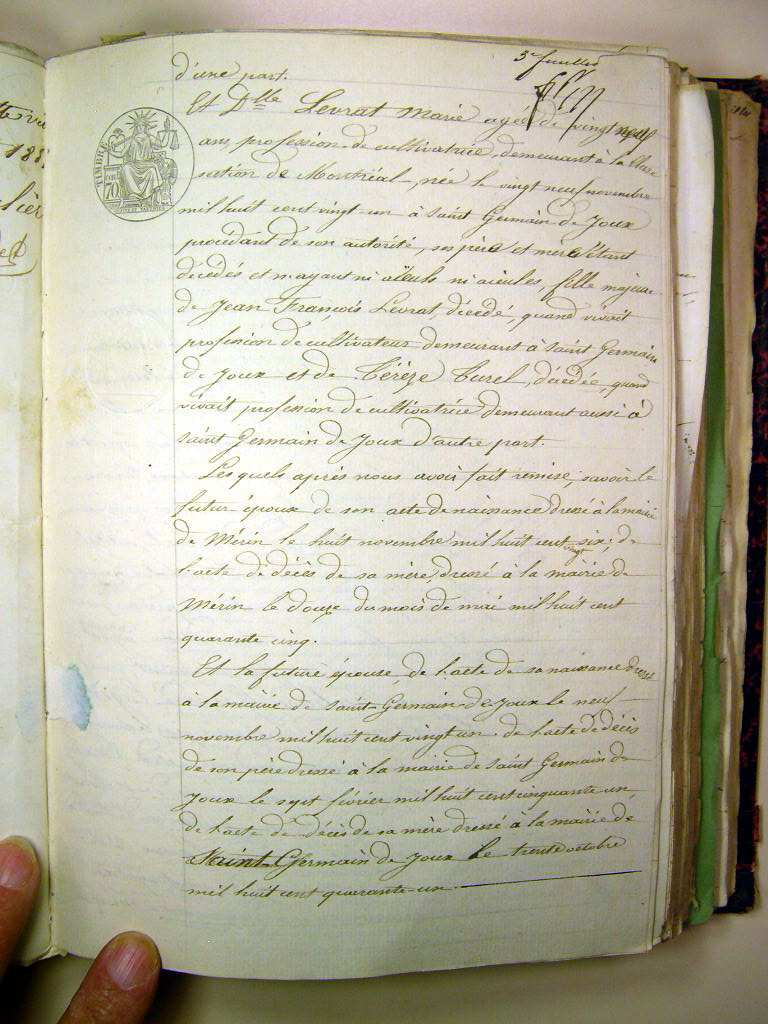 3e feuillet
d'une part.
Et Dlle Levrat Marie agée de vingt neuf
ans, profession de cultivatrice, demeurant à la
section de Montréal, née le vingt neuf novembre
mil huit cent vingt-un à Saint Germain de Joux
procédant de son autorité, ses père et mère étant
décédés et n'ayant ni aïeuls ni aïeules, fille majeure
de Jean François Levrat, décédé, quand vivait
profession de cultivateur demeurant à Saint Germain
de Joux et de Térèze Turel, décédée, quand
vivait profession de cultivatrice demeurant aussi à
Saint Germain de Joux d'autre part.
Les quels après nous avoir fait remise, savoir le
futur époux de son acte de naissance dressé à la mairie
de Mérin le huit novembre mil huit cent vingt six; de
l'acte de décès de sa mère, dressé à la mairie de
Mérin le douze du mois de mai mil huit cent
quarante cinq.
Et la future épouse de l'acte de sa naissance dressé
à la mairie de Saint Germain de Joux le neuf
novembre mil huit cent vingt un. de l'acte de décès
de son père dressé à la mairie de Saint Germain de
Joux le sept février mil huit cent cinquante un
de l'acte de décès de sa mère dressé à la mairie de
Saint Germain de Joux le trente octobre
mil huit cent quarante-un.
TIMBRE
70